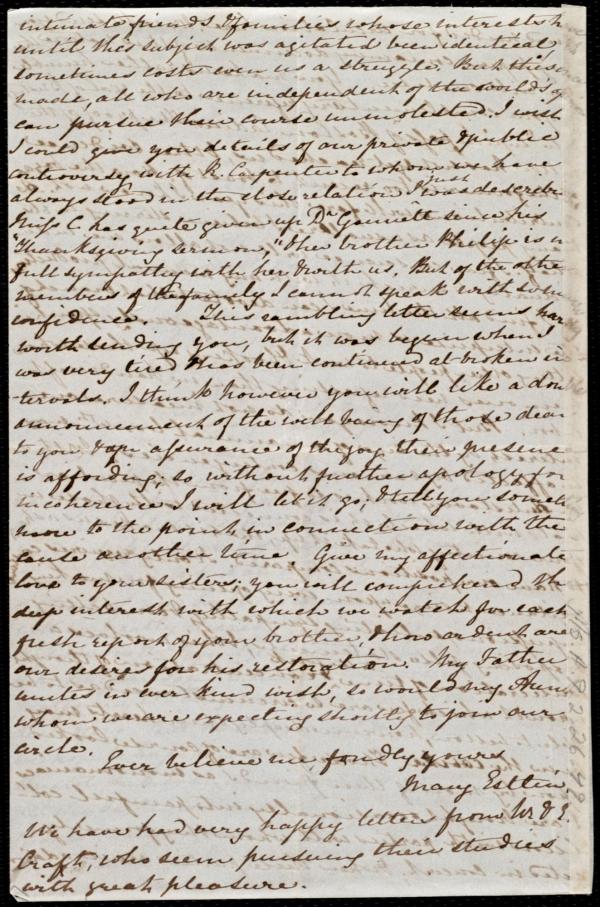 intimate friends & families whose interests h
until this subject was agitated been identical,
sometimes costs even us a struggle. But this
made, all who are independent of the world's o
can pursue their course unmolested. I wish
I could give you details of our private & public
controversy with R. Carpenter to whom we have
always stood in the close relation I just was describi
Miss C has quite given up Dr. Gannett since his
"Thanksgiving sermon," & her brother Philip is in
full sympathy with her & with us. But of the othe
members of the family I cannot speak with som
confidence. This rambling letter seems har
worth sending you, but it was begun when I
was very tired & has been continued at broken in
tervals. I think however you will like a dou
announcement of the well being of those dear
to you & an assurance of the joy their presence
is affording; so without further apology for
incoherence I will let it go, & tell you someth
more to the point in connection with the
cause another time. Give my affectionate
love to your sisters; you will comprehend th
deep interest with which we watch for each
fresh report of your brother, & how ardent are
our desires for his restoration. My Father
unites in ever kind wish, so would my Aunt
whom we are expecting shortly to join our
circle.
Ever believe me fondly yours
Mary Estlin.
We have had very happy letter from W. & E.
Craft, who seem pursuing their studies
with great pleasure.